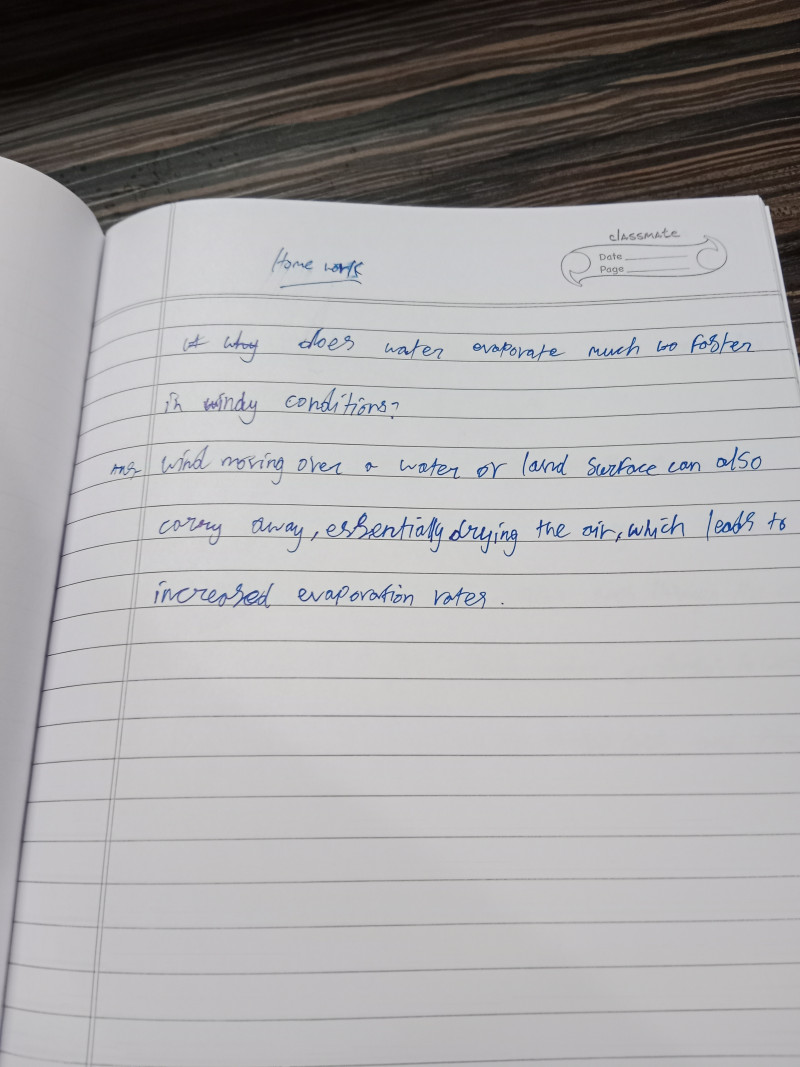 Home work
classmate
Date
Page
why does water evaporate much faster
in windy conditions?
Ans wind moving over a water or land surface can also
carry away, essentially drying the air, which leads to
increased evaporation rates.